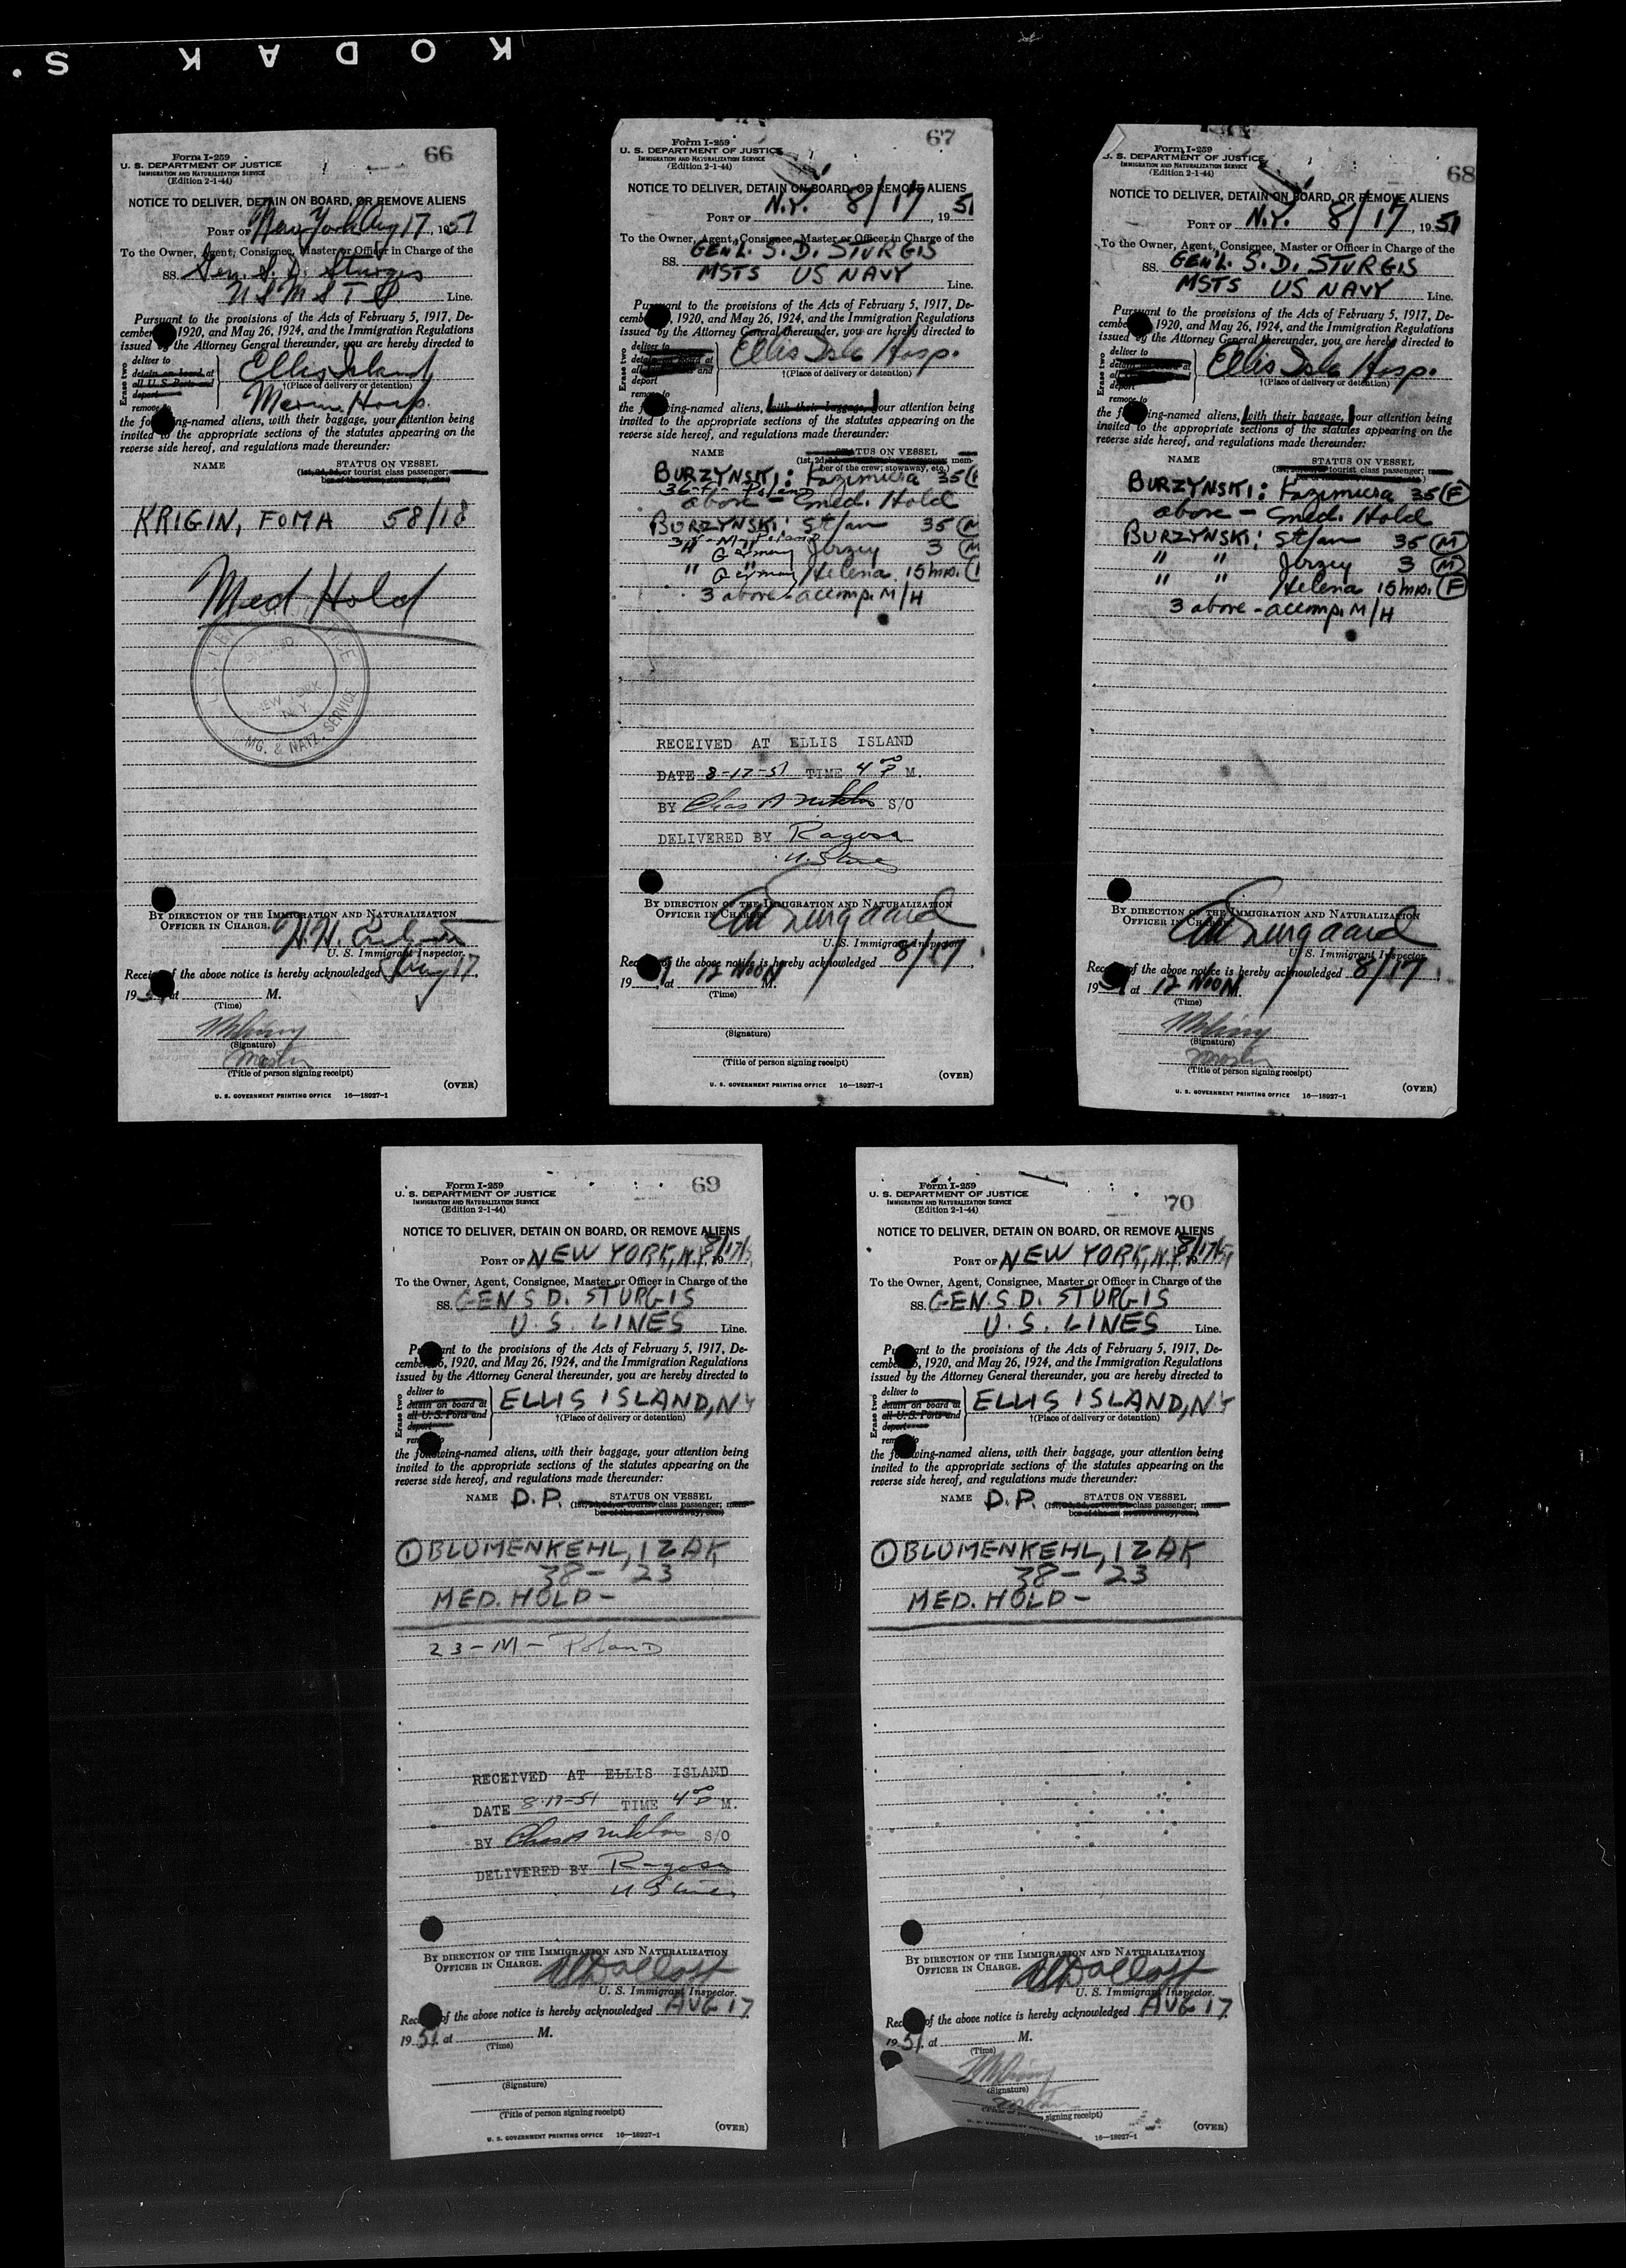 KODAK S.
66
Form I-259
U. S. DEPARTMENT OF JUSTICE
IMMIGRATION AND NATURALIZATION SERVICE
(Edition 2-1-44)
NOTICE TO DELIVER, DETAIN ON BOARD, OR REMOVE ALIENS
PORT OF New York Aug 17, 1951
To the Owner, Agent, Consignee, Master or Officer in Charge of the
SS. Gen. S. D. Sturgis
U S M S T S Line.
Pursuant to the provisions of the Acts of February 5, 1917, De-
cember 1920, and May 26, 1924, and the Immigration Regulations
issued by the Attorney General thereunder, you are hereby directed to
Erase two
deliver to
detain on board at
all U. S. Ports and
deport
remove to
Ellis Island
†(Place of delivery or detention)
Marine Hosp.
the following-named aliens, with their baggage, your attention being
invited to the appropriate sections of the statutes appearing on the
reverse side hereof, and regulations made thereunder:
NAME STATUS ON VESSEL
(1st, 2d, 3d, or tourist class passenger;
KRIGIN, FOMA 58/18
Med Hold
NEW YORK
N.Y.
IMG. & NATZ. SERVICE
BY DIRECTION OF THE IMMIGRATION AND NATURALIZATION
OFFICER IN CHARGE.
U. S. Immigrant Inspector.
Receipt of the above notice is hereby acknowledged Aug 17,
1951 at M.
(Time)
(Signature)
Master
(Title of person signing receipt)
(OVER)
U. S. GOVERNMENT PRINTING OFFICE 16—18927-1
67
Form I-259
U. S. DEPARTMENT OF JUSTICE
IMMIGRATION AND NATURALIZATION SERVICE
(Edition 2-1-44)
NOTICE TO DELIVER, DETAIN ON BOARD, OR REMOVE ALIENS
PORT OF N.Y. 8/17, 1951
To the Owner, Agent, Consignee, Master or Officer in Charge of the
SS. GEN'L. S. D. STURGIS
MSTS US NAVY Line.
Pursuant to the provisions of the Acts of February 5, 1917, De-
cember , 1920, and May 26, 1924, and the Immigration Regulations
issued by the Attorney General thereunder, you are hereby directed to
Erase two
deliver to
detain on board at
all and
deport
remove to
Ellis Isle Hosp.
†(Place of delivery or detention)
the following-named aliens, with their baggage, your attention being
invited to the appropriate sections of the statutes appearing on the
reverse side hereof, and regulations made thereunder:
NAME STATUS ON VESSEL
(1st, 2d, class passenger; mem-
ber of the crew; stowaway, etc.)
BURZYNSKI: Kazimiera 35 (F
36-F- Poland
above - med. Hold
BURZYNSKI: Stefan 35 (M
35-M- Poland
" Germany Jerzey 3 (M
" Germany Helena 15 mo. (
3 above - accomp. M/H
RECEIVED AT ELLIS ISLAND
DATE 8-17-51 TIME 4 00 P M.
BY Chas A S/O
DELIVERED BY Ragosa
U.S Lines
BY DIRECTION OF THE IMMIGRATION AND NATURALIZATION
OFFICER IN CHARGE.
U. S. Immigrant Inspector.
Receipt of the above notice is hereby acknowledged 8/17,
1951 at 12 NOON M.
(Time)
(Signature)
(Title of person signing receipt)
(OVER)
U. S. GOVERNMENT PRINTING OFFICE 16—18927-1
68
Form I-259
U. S. DEPARTMENT OF JUSTICE
IMMIGRATION AND NATURALIZATION SERVICE
(Edition 2-1-44)
NOTICE TO DELIVER, DETAIN ON BOARD, OR REMOVE ALIENS
PORT OF N.Y. 8/17, 1951
To the Owner, Agent, Consignee, Master or Officer in Charge of the
SS. GEN'L. S. D. STURGIS
MSTS US NAVY Line.
Pursuant to the provisions of the Acts of February 5, 1917, De-
cember 1920, and May 26, 1924, and the Immigration Regulations
issued by the Attorney General thereunder, you are hereby directed to
Erase two
deliver to
deport
remove to
Ellis Isle Hosp.
†(Place of delivery or detention)
the following-named aliens, with their baggage, your attention being
invited to the appropriate sections of the statutes appearing on the
reverse side hereof, and regulations made thereunder:
NAME STATUS ON VESSEL
tourist class passenger;
BURZYNSKI: Kazimiera 35 (F)
above - med. Hold
BURZYNSKI: Stefan 35 (M)
" " Jerzey 3 (M)
" " Helena 15 mo. (F)
3 above - accomp. M/H
BY DIRECTION OF THE IMMIGRATION AND NATURALIZATION
OFFICER IN CHARGE.
U. S. Immigrant Inspector.
Receipt of the above notice is hereby acknowledged 8/17,
1951 at 12 NOON M.
(Time)
(Signature)
Master
(Title of person signing receipt)
(OVER)
U. S. GOVERNMENT PRINTING OFFICE 16—18927-1
69
Form I-259
U. S. DEPARTMENT OF JUSTICE
IMMIGRATION AND NATURALIZATION SERVICE
(Edition 2-1-44)
NOTICE TO DELIVER, DETAIN ON BOARD, OR REMOVE ALIENS
PORT OF NEW YORK, N.Y. 8/17/ 19
To the Owner, Agent, Consignee, Master or Officer in Charge of the
SS. GEN S. D. STURGIS
U. S. LINES Line.
Pursuant to the provisions of the Acts of February 5, 1917, De-
cember 5, 1920, and May 26, 1924, and the Immigration Regulations
issued by the Attorney General thereunder, you are hereby directed to
Erase two
deliver to
detain on board at
all U. S. Ports and
deport
remove to
ELLIS ISLAND, NY
†(Place of delivery or detention)
the following-named aliens, with their baggage, your attention being
invited to the appropriate sections of the statutes appearing on the
reverse side hereof, and regulations made thereunder:
NAME D.P. STATUS ON VESSEL
(1st, 2d, 3d, or tourist class passenger; mem-
ber of the crew; stowaway, etc.)
① BLUMENKEHL, IZAK
38- 23
MED. HOLD -
23 - M - Poland
RECEIVED AT ELLIS ISLAND
DATE 8-17-51 TIME 4 00 P M.
BY Chas A S/O
DELIVERED BY Ragosa
U S Lines
BY DIRECTION OF THE IMMIGRATION AND NATURALIZATION
OFFICER IN CHARGE.
U. S. Immigrant Inspector.
Receipt of the above notice is hereby acknowledged AUG 17,
1951. at M.
(Time)
(Signature)
(Title of person signing receipt)
(OVER)
U. S. GOVERNMENT PRINTING OFFICE 16—18927-1
70
Form I-259
U. S. DEPARTMENT OF JUSTICE
IMMIGRATION AND NATURALIZATION SERVICE
(Edition 2-1-44)
NOTICE TO DELIVER, DETAIN ON BOARD, OR REMOVE ALIENS
PORT OF NEW YORK, N.Y. 8/17/51
To the Owner, Agent, Consignee, Master or Officer in Charge of the
SS. GEN. S. D. STURGIS
U. S. LINES Line.
Pursuant to the provisions of the Acts of February 5, 1917, De-
cember 5, 1920, and May 26, 1924, and the Immigration Regulations
issued by the Attorney General thereunder, you are hereby directed to
Erase two
deliver to
detain on board at
all U. S. Ports and
deport
remove to
ELLIS ISLAND, NY
†(Place of delivery or detention)
the following-named aliens, with their baggage, your attention being
invited to the appropriate sections of the statutes appearing on the
reverse side hereof, and regulations made thereunder:
NAME D.P. STATUS ON VESSEL
(1st, 2d, 3d, or tourist class passenger; mem-
① BLUMENKEHL, IZAK
38- 23
MED. HOLD -
BY DIRECTION OF THE IMMIGRATION AND NATURALIZATION
OFFICER IN CHARGE.
U. S. Immigrant Inspector.
Receipt of the above notice is hereby acknowledged AUG 17,
1951. at M.
(Time)
(Signature)
signing receipt)
(OVER)
16—18927-1